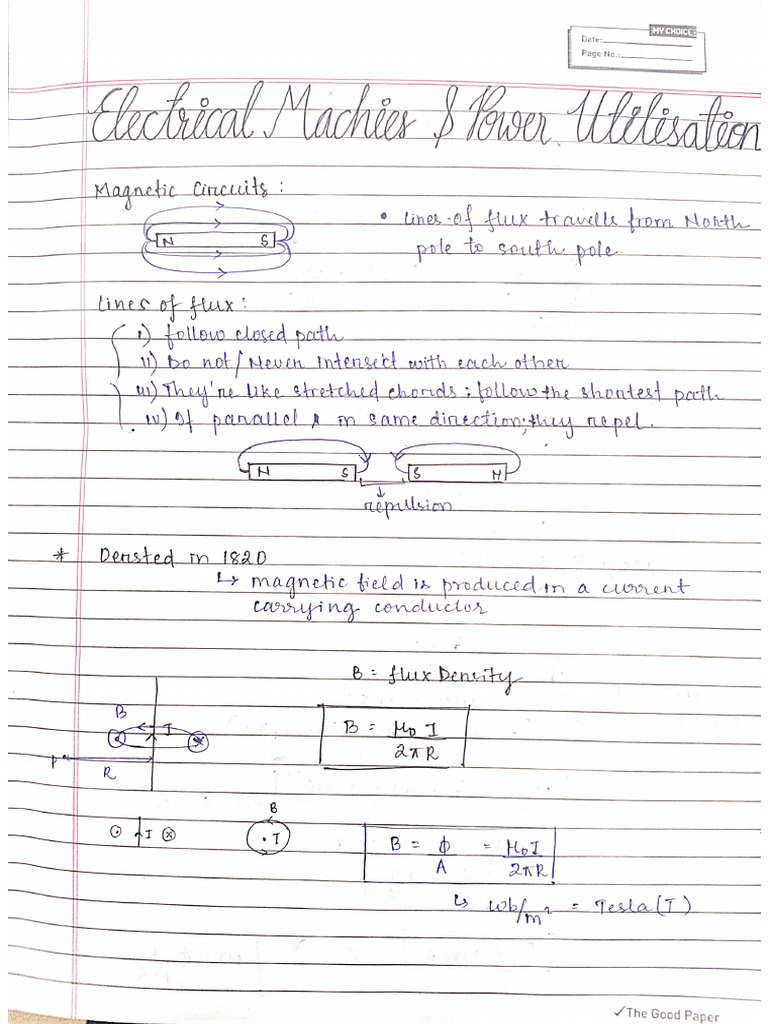 MY CHOICE
Date:
Page No.:
Electrical Machies & Power Utilisation
Magnetic Circuits :
N S
• Lines of flux travells from North
pole to south pole.
Lines of flux :
i) follow closed path
ii) Do not / Never intersect with each other
iii) They're like stretched chords ; follow the shortest path
iv) If parallel & in same direction, they repel.
N S S N
repulsion
* Oersted in 1820
↳ magnetic field is produced in a current
carrying conductor
B = flux Density
B I
P R
B = μ₀ I / 2πR
B
I I
B = ϕ / A = μ₀I / 2πR
↳ wb/m² = Tesla (T)
✓The Good Paper